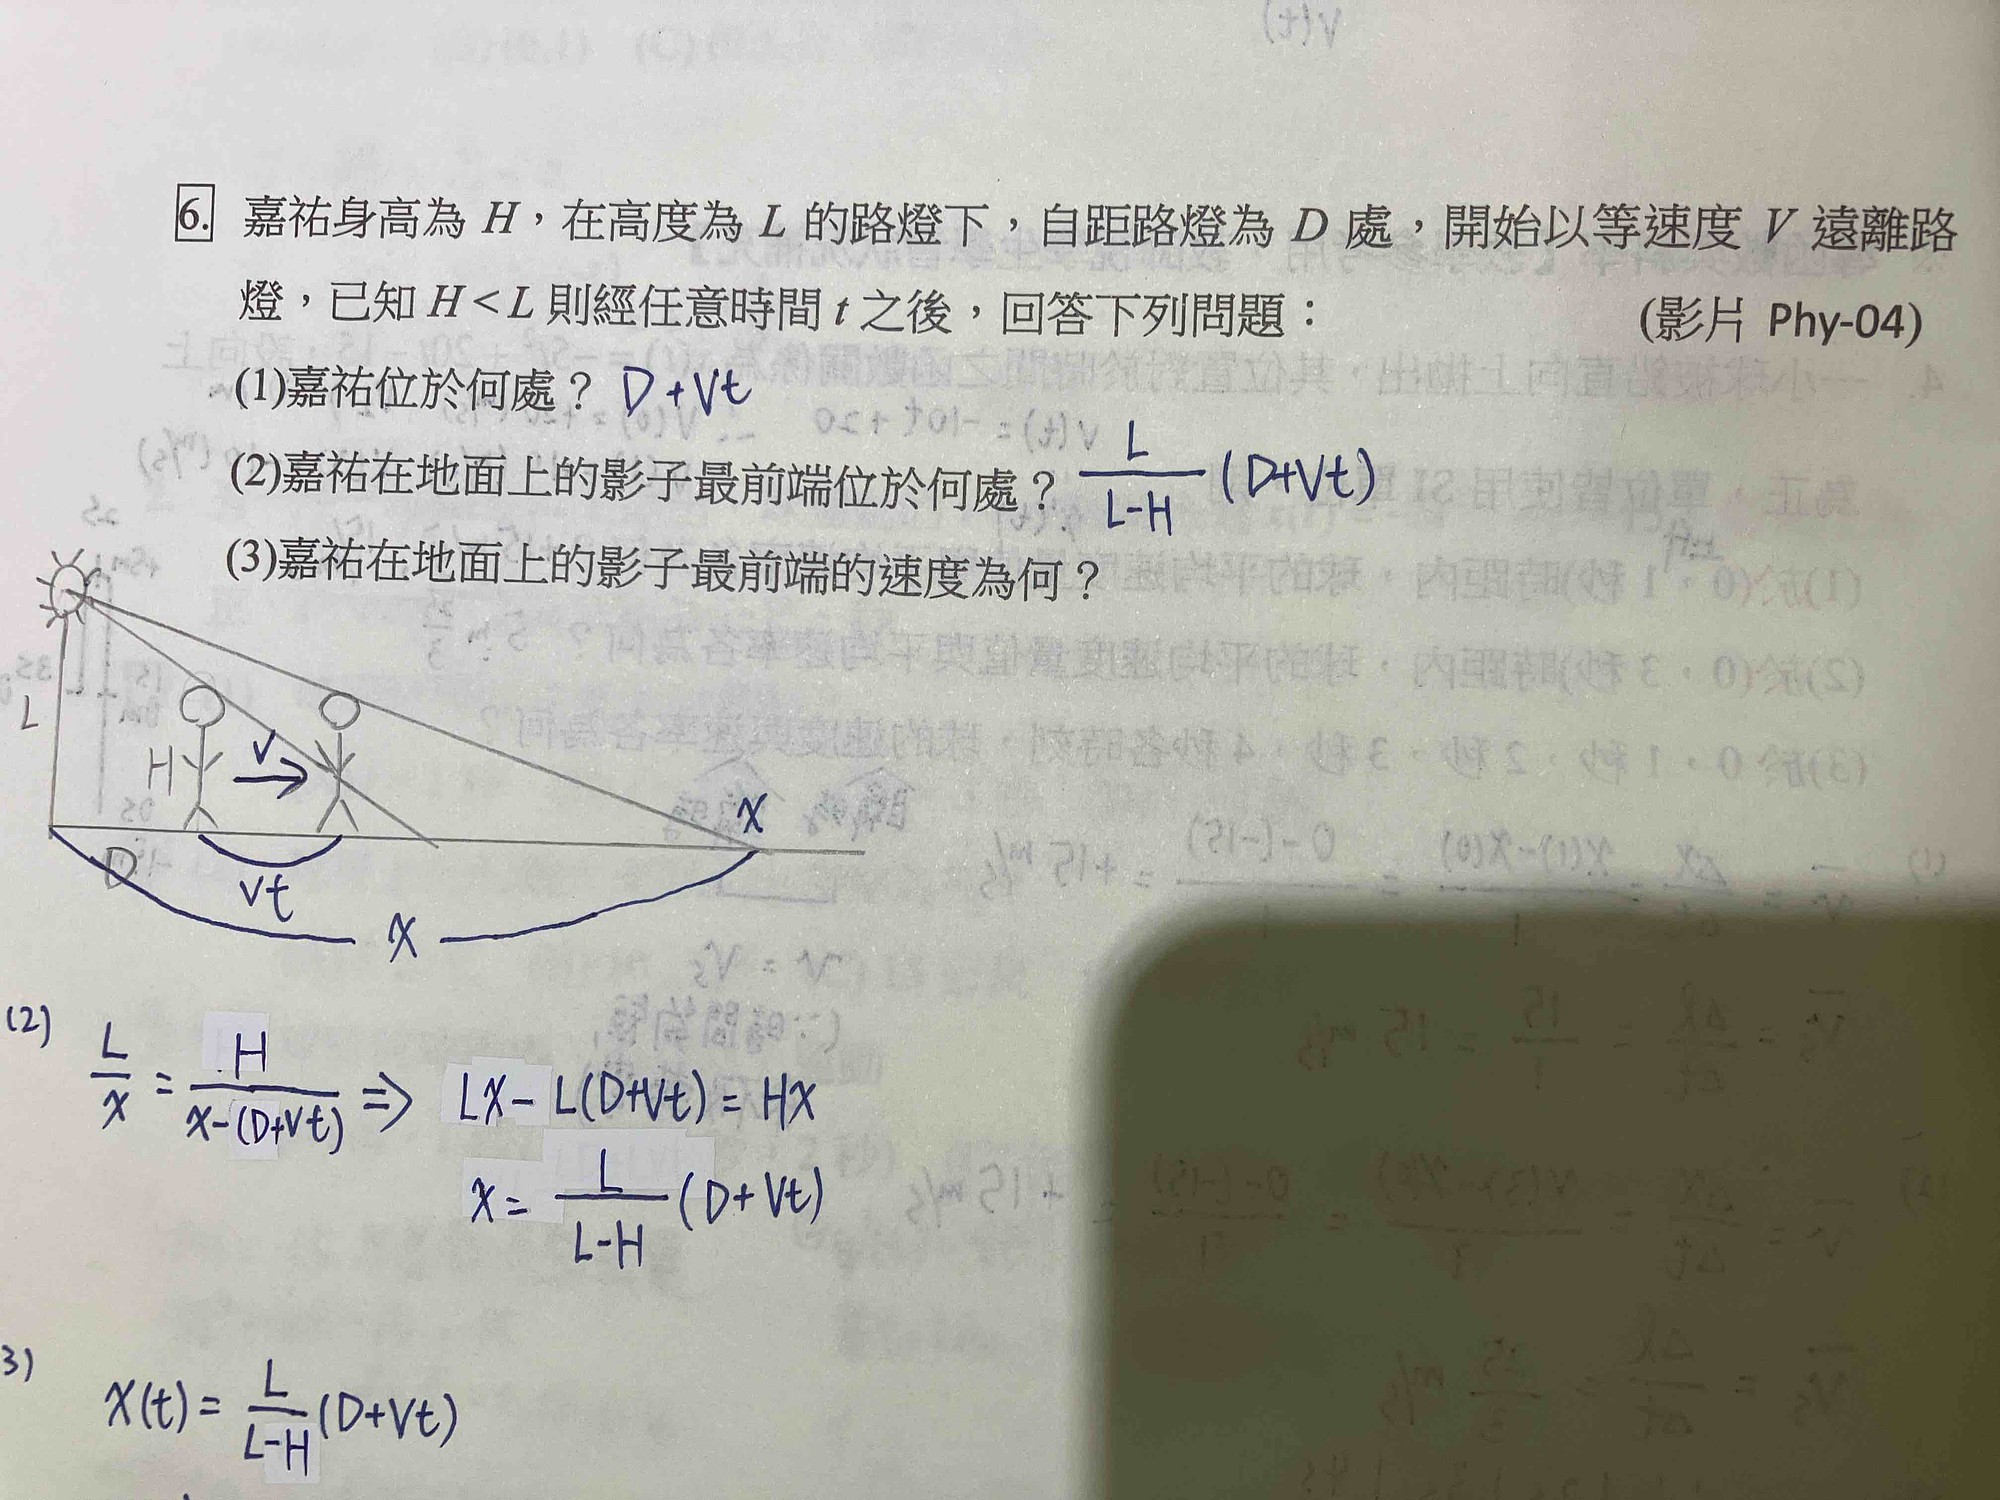 6. 嘉祐身高為 H，在高度為 L 的路燈下，自距路燈為 D 處，開始以等速度 V 遠離路
燈，已知 H < L 則經任意時間 t 之後，回答下列問題： (影片 Phy-04)
(1)嘉祐位於何處？ D+Vt
(2)嘉祐在地面上的影子最前端位於何處？ L/(L-H) (D+Vt)
(3)嘉祐在地面上的影子最前端的速度為何？
L
H
V
x
D
Vt
x
(2) L/x = H/(x-(D+Vt)) ⇒ Lx - L(D+Vt) = Hx
x = L/(L-H) (D+Vt)
3) x(t) = L/(L-H) (D+Vt)